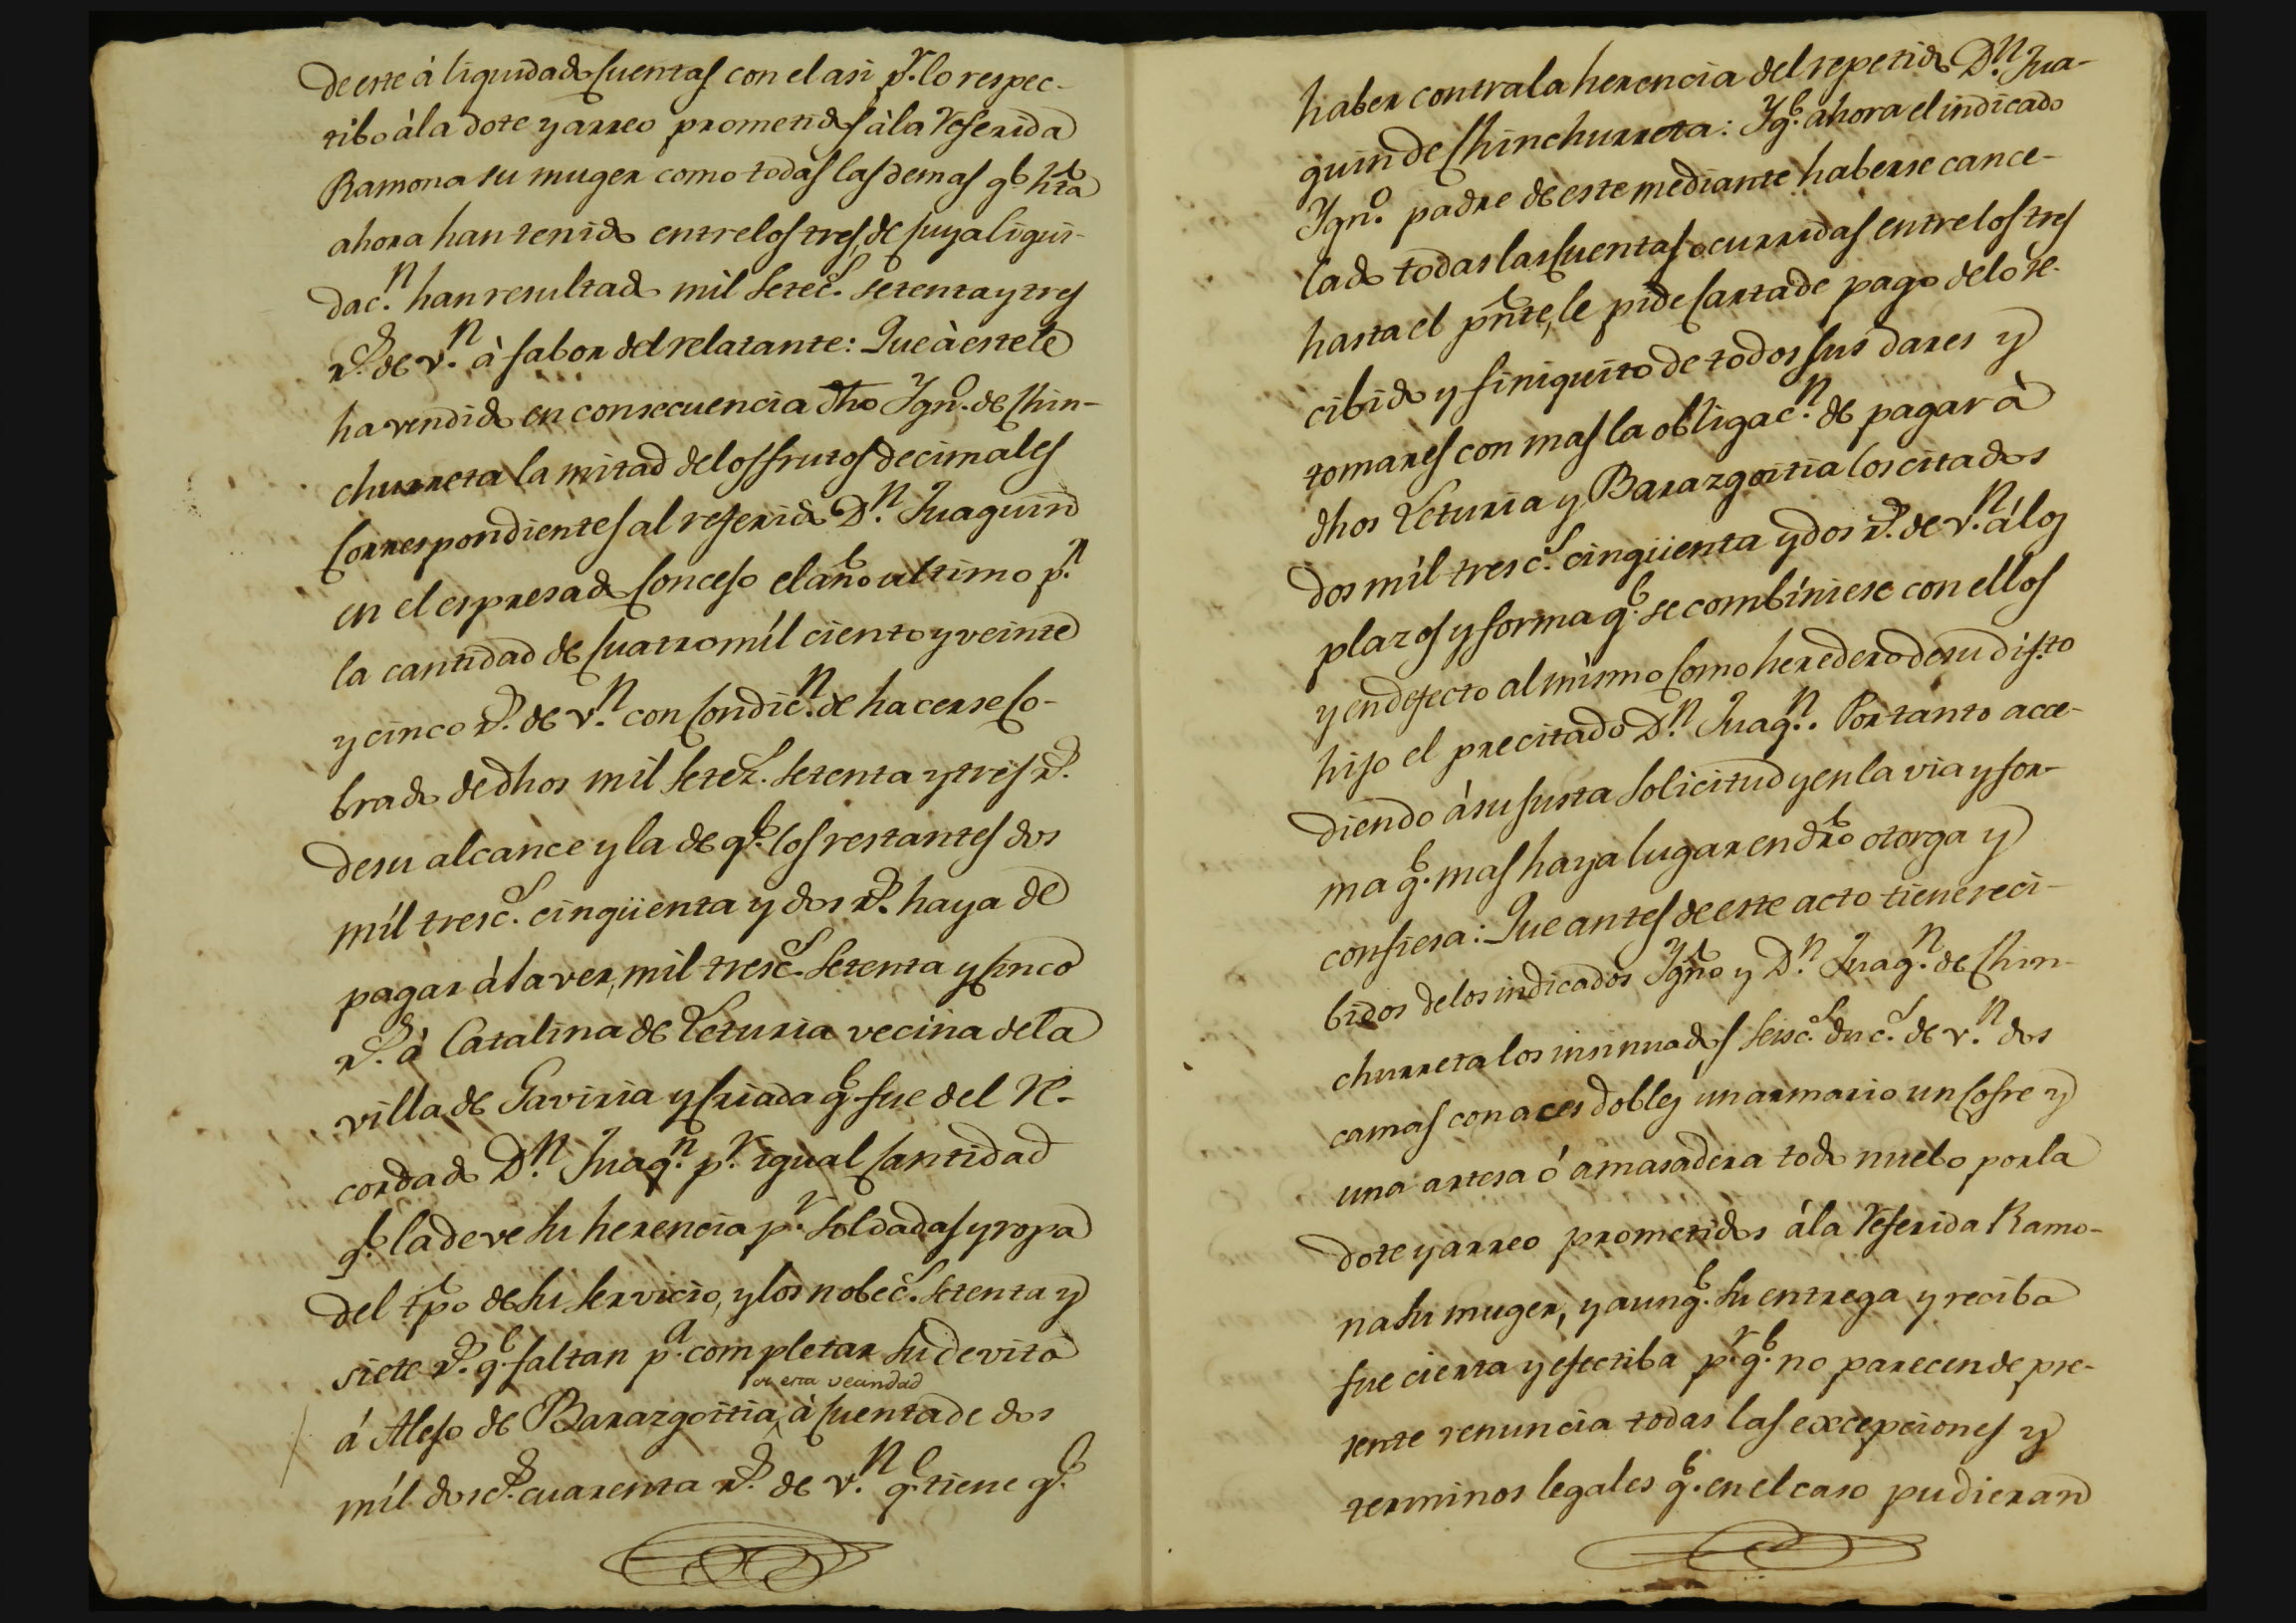 de este á liquidado Cuentas con el asi p.r lo respec-
tibo á la dote y arreo prometidos á la referida
Ramona su muger como todas las demas q.e hta
ahora han tenido entre los tres, de cuya liqui-
dac.n han resultado mil setec.s setenta y tres
r.s de v.n á fabor del relatante: Que á este le
ha vendido en consecuencia dho Ygn.o de Chin-
churreta la mitad de los frutos decimales
Correspondientes al referido D.n Juaquin
en el espresado Conceso el año ultimo p.n
la cantidad de Cuatro mil ciento y veinte
y cinco r.s de v.n con Condic.n de hacerse Co-
brado de dhos mil setec.s setenta y tres r.s
de su alcance y la de q.e los restantes dos
mil tresc.s cinqüenta y dos r.s haya de
pagar á la ver, mil tresc.s setenta y Cinco
r.s á Catalina de Leturia vecina de la
villa de Gaviria y Criada q.e fue del re-
cordado D.n Juaq.n p.r igual Cantidad
q.e la deve su herencia p.r soldadas y ropa
del tpo de su servicio, y los nobec.s setenta y
siete r.s q.e faltan p.a completar su devito
de esta vecindad
á Alejo de Barazgoitia, á Cuenta de dos
mil dosc.s cuarenta r.s de v.n q.e tiene q.e
haber contra la herencia del repetido D.n Jua-
quin de Chinchurreta: Y q.e ahora el indicado
Ygn.o padre de este mediante haberse cance-
lado todas las Cuentas ocurridas entre los tres
hasta el pnte, le pide Carta de pago de lo re-
cibido y finiquito de todos sus dares y
tomares con mas la obligac.n de pagar á
dhos Leturia y Barazgoitia los citados
dos mil tresc.s cinqüenta y dos r.s de v.n á los
plazos y forma q.e se combiniese con ellos
y en defecto al mismo Como heredero de su dif.to
hijo el precitado D.n Juaq.n. Por tanto acce-
diendo á su justa solicitud y en la via y for-
ma q.e mas haya lugar en dro otorga y
confiesa: Que antes de este acto tiene reci-
bidos de los indicados Ygno y D.n Juaq.n de Chin-
churreta los insinuados seisc.s duc.s de v.n dos
camas con aces dobles un armario un Cofre y
una artesa ó amasadera todo nuebo por la
dote y arreo prometidos á la referida Ramo-
na su muger, y aunq.e su entrega y recibo
fue cierta y efectiba p.r q.e no parecen de pre-
sente renuncia todas las excepciones y
terminos legales q.e en el caso pudieran